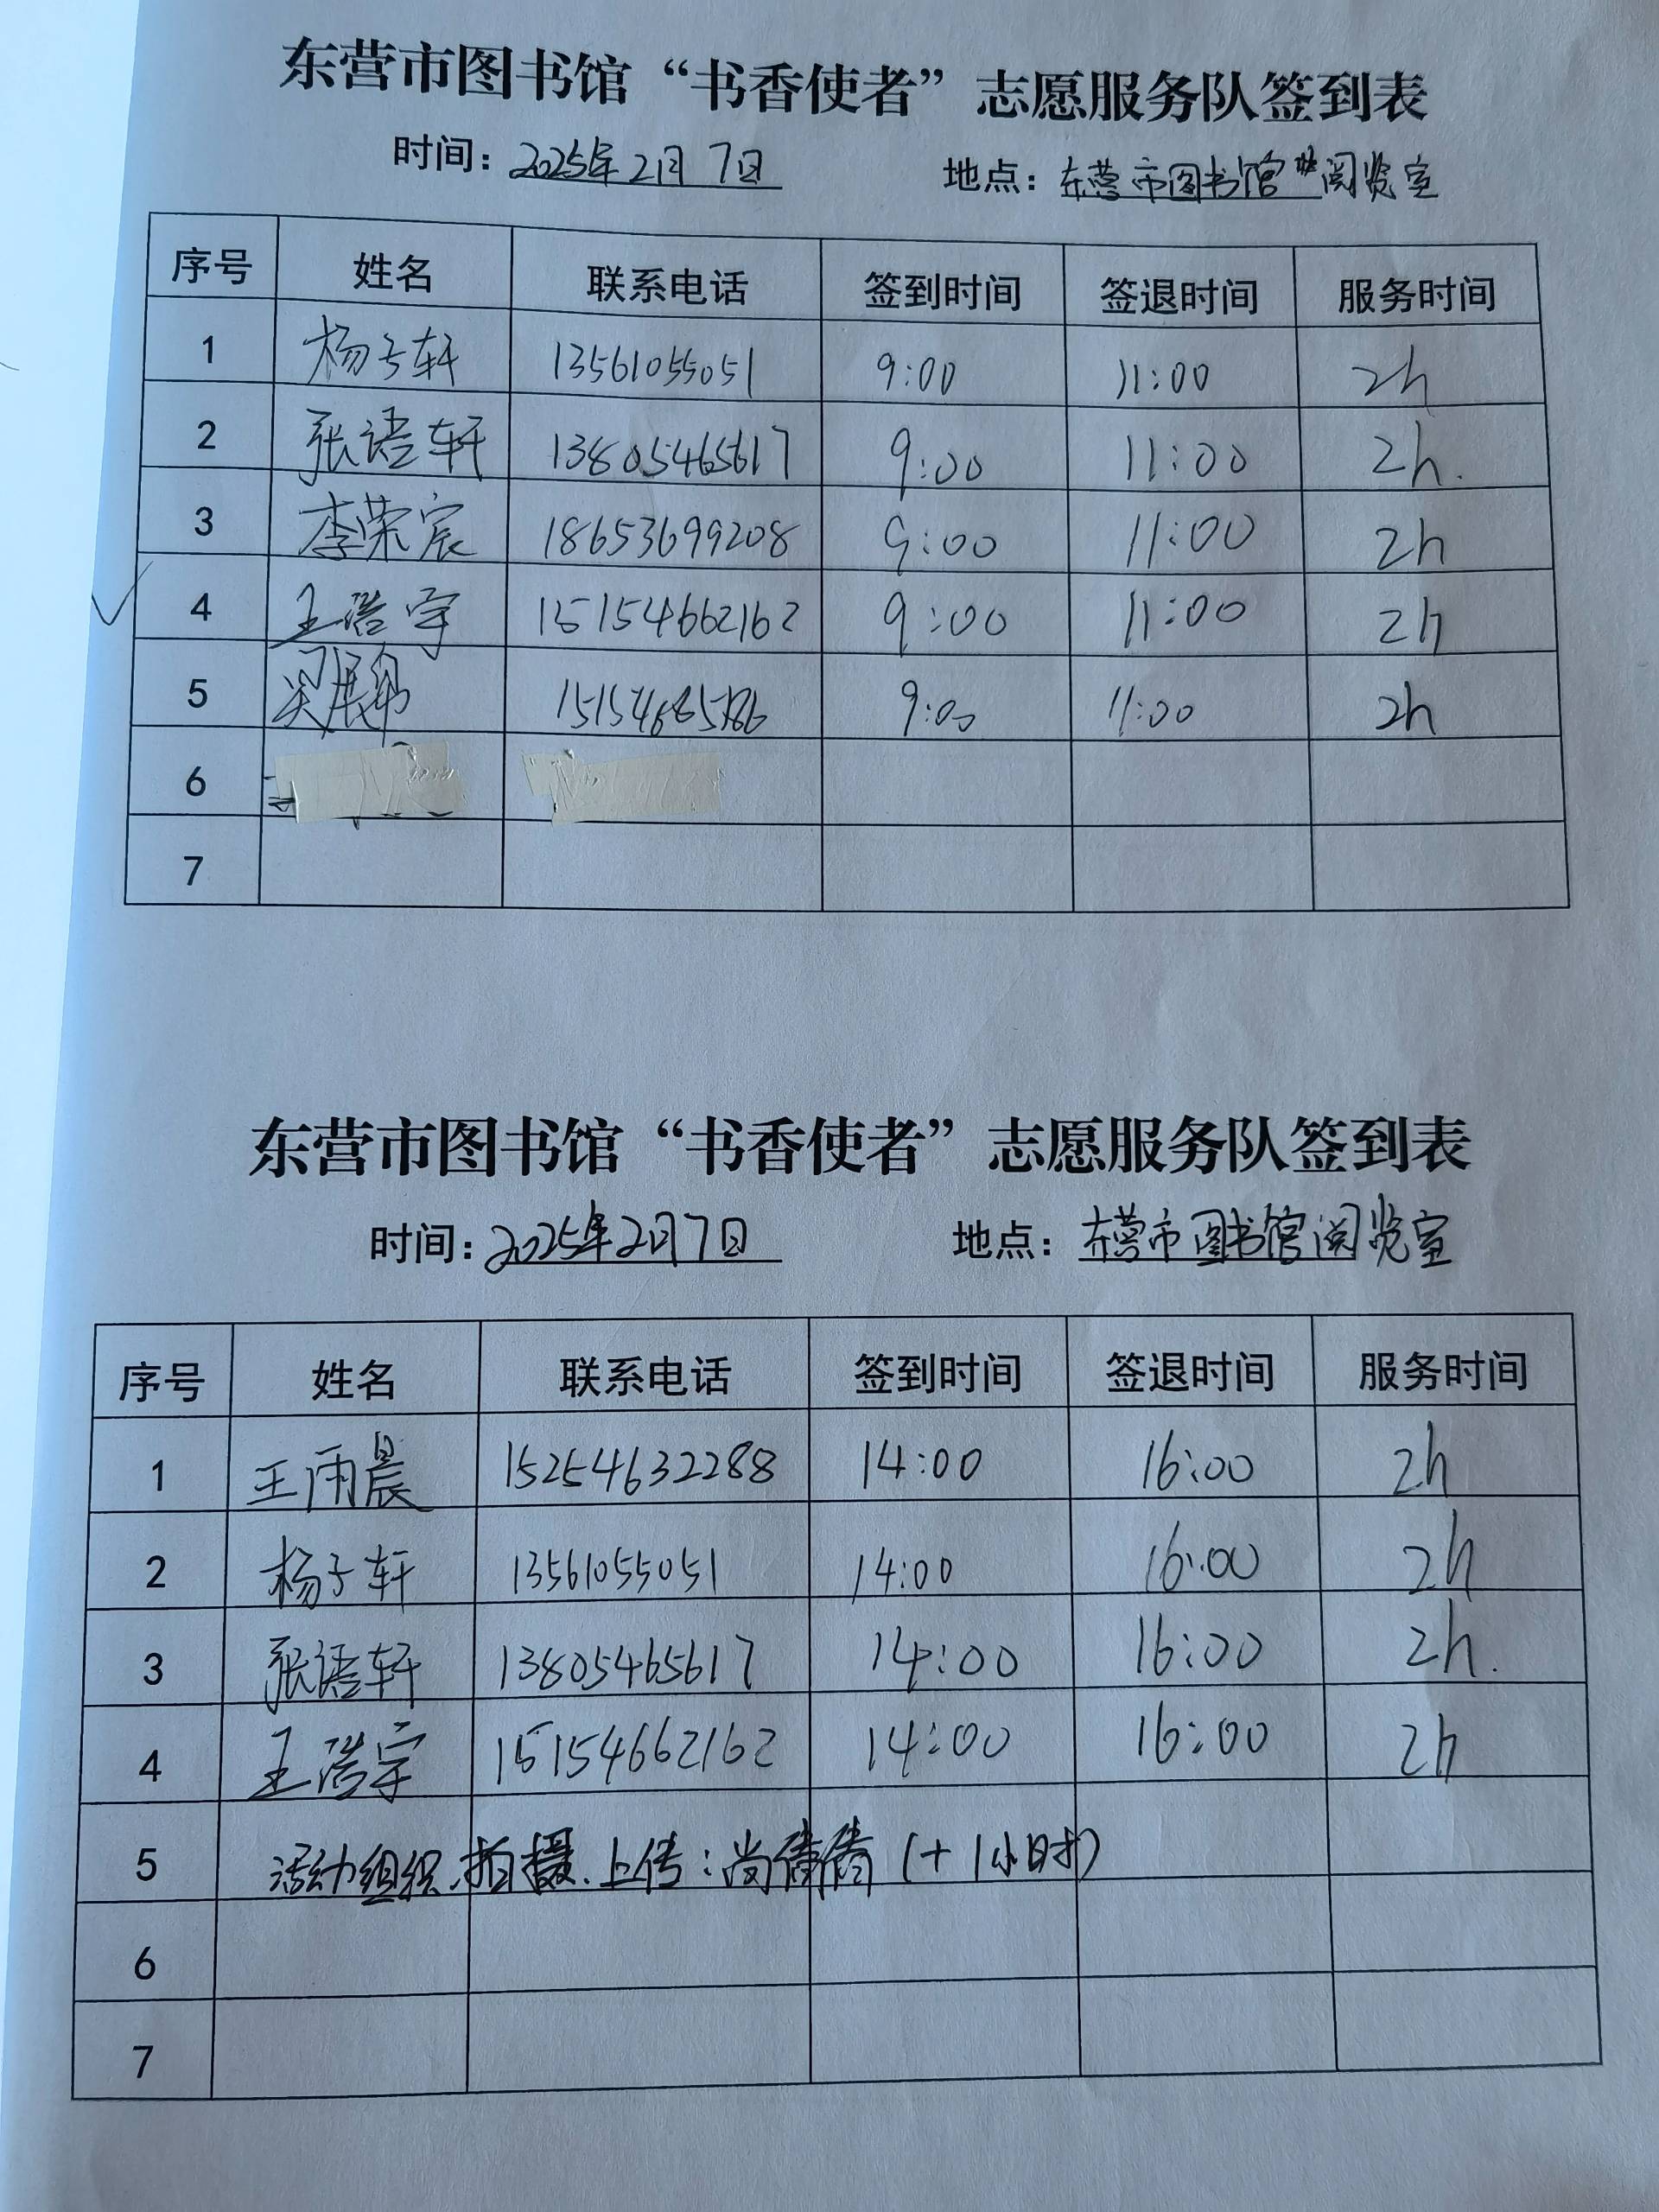 东营市图书馆“书香使者”志愿服务队签到表
时间：2025年2月7日 地点：东营市图书馆阅览室
序号 姓名 联系电话 签到时间 签退时间 服务时间
1 杨子轩 13561055051 9:00 11:00 2h
2 张语轩 13805465617 9:00 11:00 2h.
3 李荣宸 18653699208 9:00 11:00 2h
4 王浩宇 15154662162 9:00 11:00 2h
5 9:00 11:00 2h
6
7
东营市图书馆“书香使者”志愿服务队签到表
时间：2025年2月7日 地点：东营市图书馆阅览室
序号 姓名 联系电话 签到时间 签退时间 服务时间
1 王雨晨 15254632288 14:00 16:00 2h
2 杨子轩 13561055051 14:00 16:00 2h
3 张语轩 13805465617 14:00 16:00 2h.
4 王浩宇 15154662162 14:00 16:00 2h
5 活动组织、拍摄、上传：尚倩倩（+1小时）
6
7